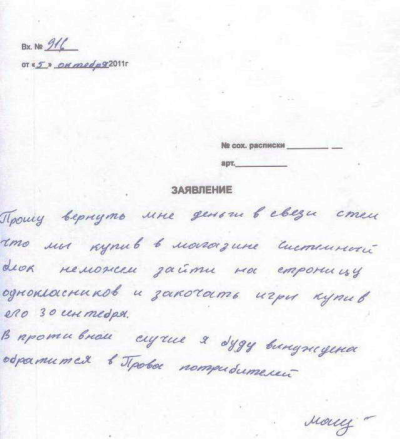 Вх. № 916
от «5» октября 2011г
№ сох. расписки
арт.
ЗАЯВЛЕНИЕ
Прошу вернуть мне деньги в свези стем
что мы купив в магазине системный
блок неможем зайти на строницу
однокласников и закочать игры купив
его 30 сентебря.
В противном случие я буду вынуждена
обратится в Права потрибителей